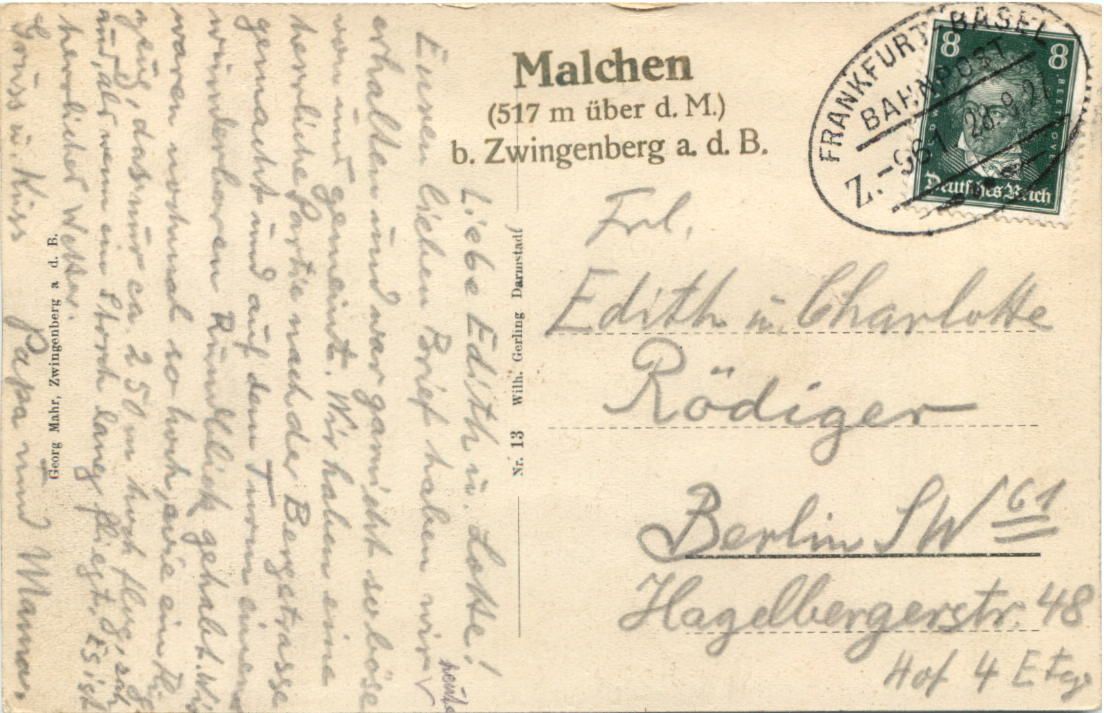 Malchen
(517 m über d. M.)
b. Zwingenberg a. d. B.
FRANKFURT. BASEL
BAHNPOST
28.9.2
8
8
BEETHOVEN
Deutsches Reich
Frl.
Edith u. Charlotte
Rödiger
Berlin SW 61
Hagelbergerstr. 48
Hof 4 Etag
Nr. 13 Wilh. Gerling Darmstadt
Georg Mahr, Zwingenberg a d. B.
Liebe Edith u. Lotte!
Euren lieben Brief haben wir heute
erhalten und war garnicht so böse
von uns gemeint. Wir haben eine
herrliche Partie nach der Bergstrasse
gemacht und auf dem Turm einen
wunderbaren Rundblick gehabt. Wir
waren nochmal so hoch, wie ein Flug
zeug, das nur ca. 250 m hoch flog,
aus, als wenn ein Storch lang fliegt. Es ist
herrliches Wetter.
Gruss u. Kuss
Papa und Mama.